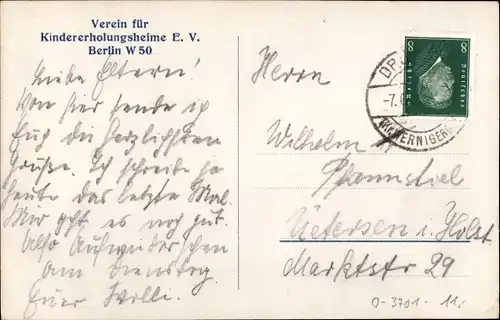 Verein für
Kindererholungsheime E. V.
Berlin W 50
Liebe Eltern!
Von hier sende ich
Euch die herzlichsten
Grüße. Ich schreibe ja
heute das letzte Mal.
Mir geht es noch gut.
Also Aufwiedersehen
am Dienstag.
Euer Willi.
Herrn
Wilhelm
Pfannstiel
Uetersen i. Holst
Marktstr 29
8 8
Deutsches Reich
-7.6
WERNIGER
0-3701-11